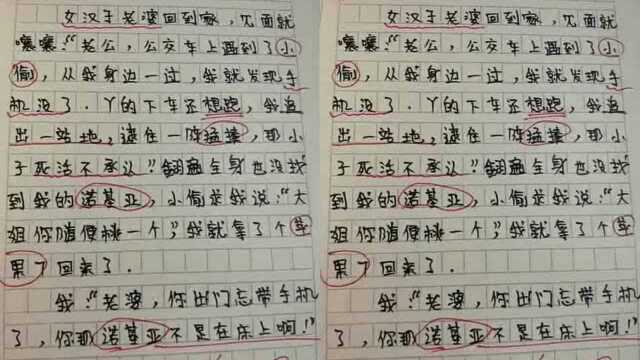 女汉子老婆回到家,见面就
嚷嚷:“老公,公交车上遇到了小
偷,从我身边一过,我就发现手
机没了.丫的下车还想跑,我追
出一站地,逮住一阵猛揍,那小
子死活不承认!翻遍全身也没找
到我的诺基亚,小偷求我说:“大
姐你随便挑一个”,我就拿了个苹
果了回来了.
我:“老婆,你出门忘带手机
了,你那诺基亚不是在床上啊!”
女汉子老婆回到家,见面就
嚷嚷:“老公,公交车上遇到了小
偷,从我身边一过,我就发现手
机没了.丫的下车还想跑,我追
出一站地,逮住一阵猛揍,那小
子死活不承认!翻遍全身也没找
到我的诺基亚,小偷求我说:“大
姐你随便挑一个”,我就拿了个苹
果了回来了.
我:“老婆,你出门忘带手机
了,你那诺基亚不是在床上啊!”